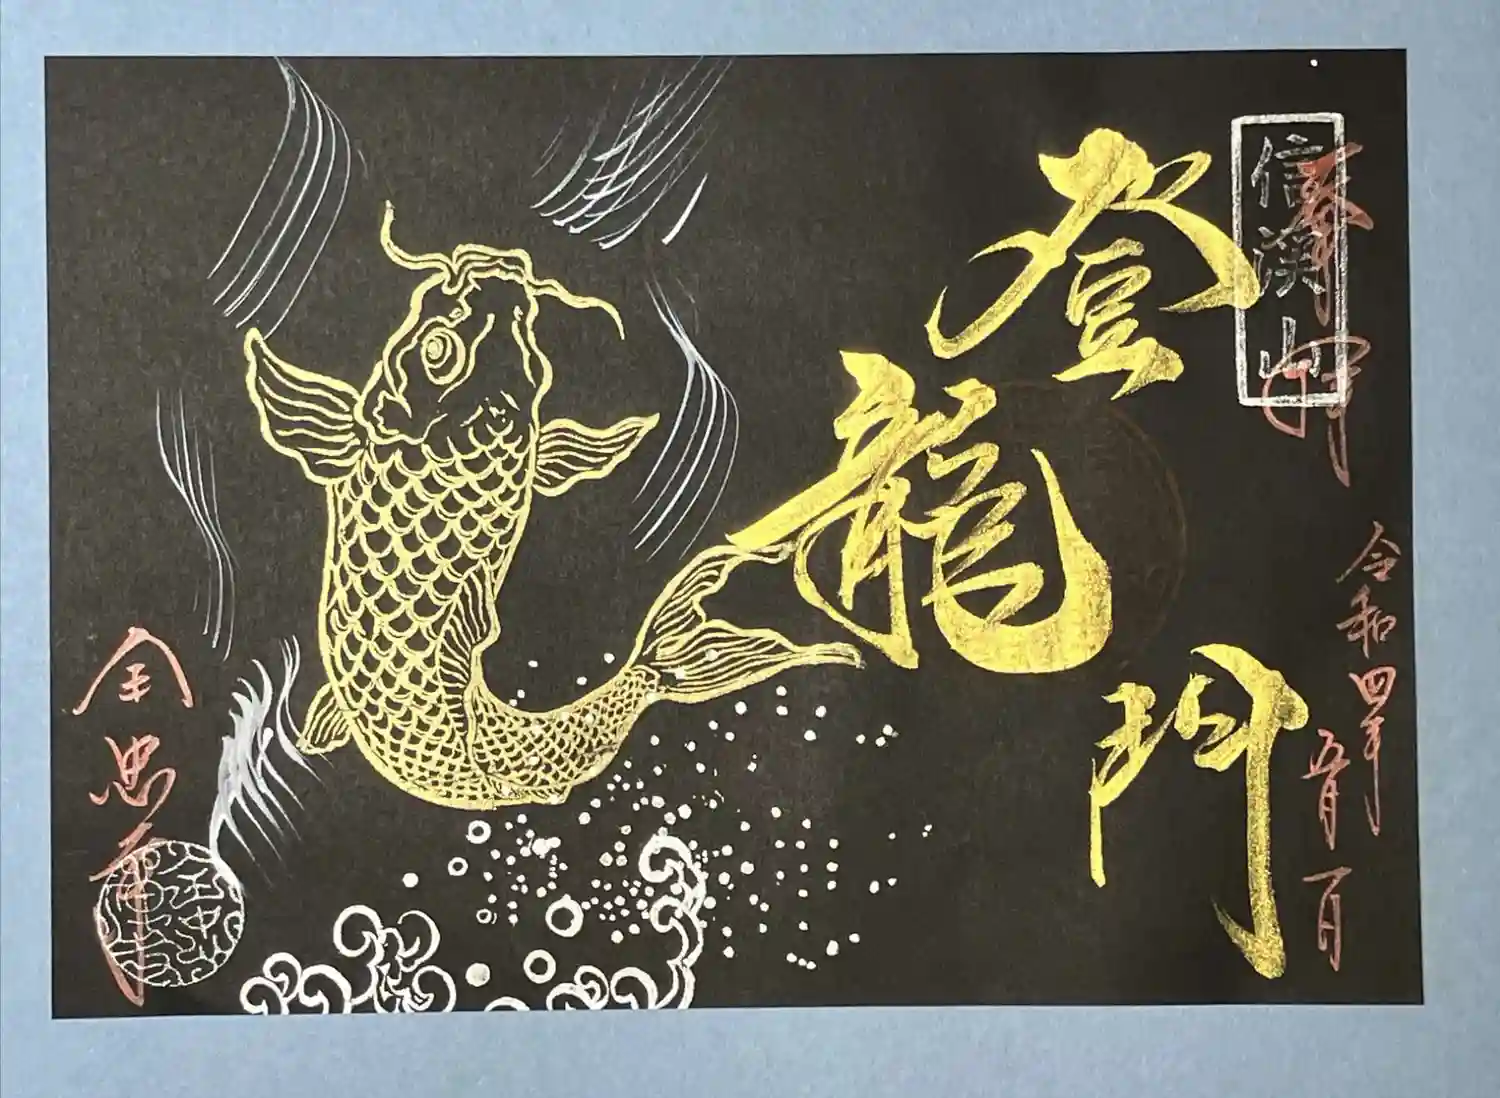 奉拝
信濃山
令和四年
五月一日
登龍門
全忠寺